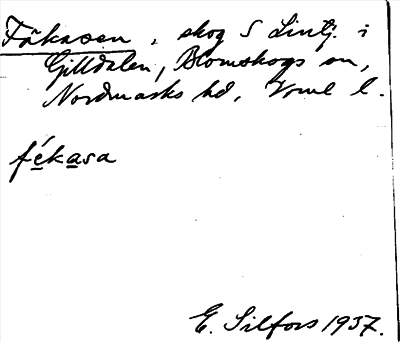 Fäkasen, skog S Lintj. i
Gilldalen, Blomskogs sn,
Nordmarks hd, Vrml l.
fékasa
E. Silfors 1937.